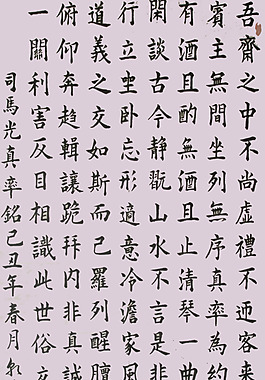 吾齋之中不尚虛禮不迊客來
賓主無間坐列無序真率為約
有酒且酌無酒且止清琴一曲
閑談古今靜翫山水不言是非
行立坐卧忘形適意冷澹家風
道義之交如斯而已羅列醒膻
俯仰奔趍輯讓跪拜內非真誠
一關利害反目相識此世俗交
司馬光真率銘己丑年春月